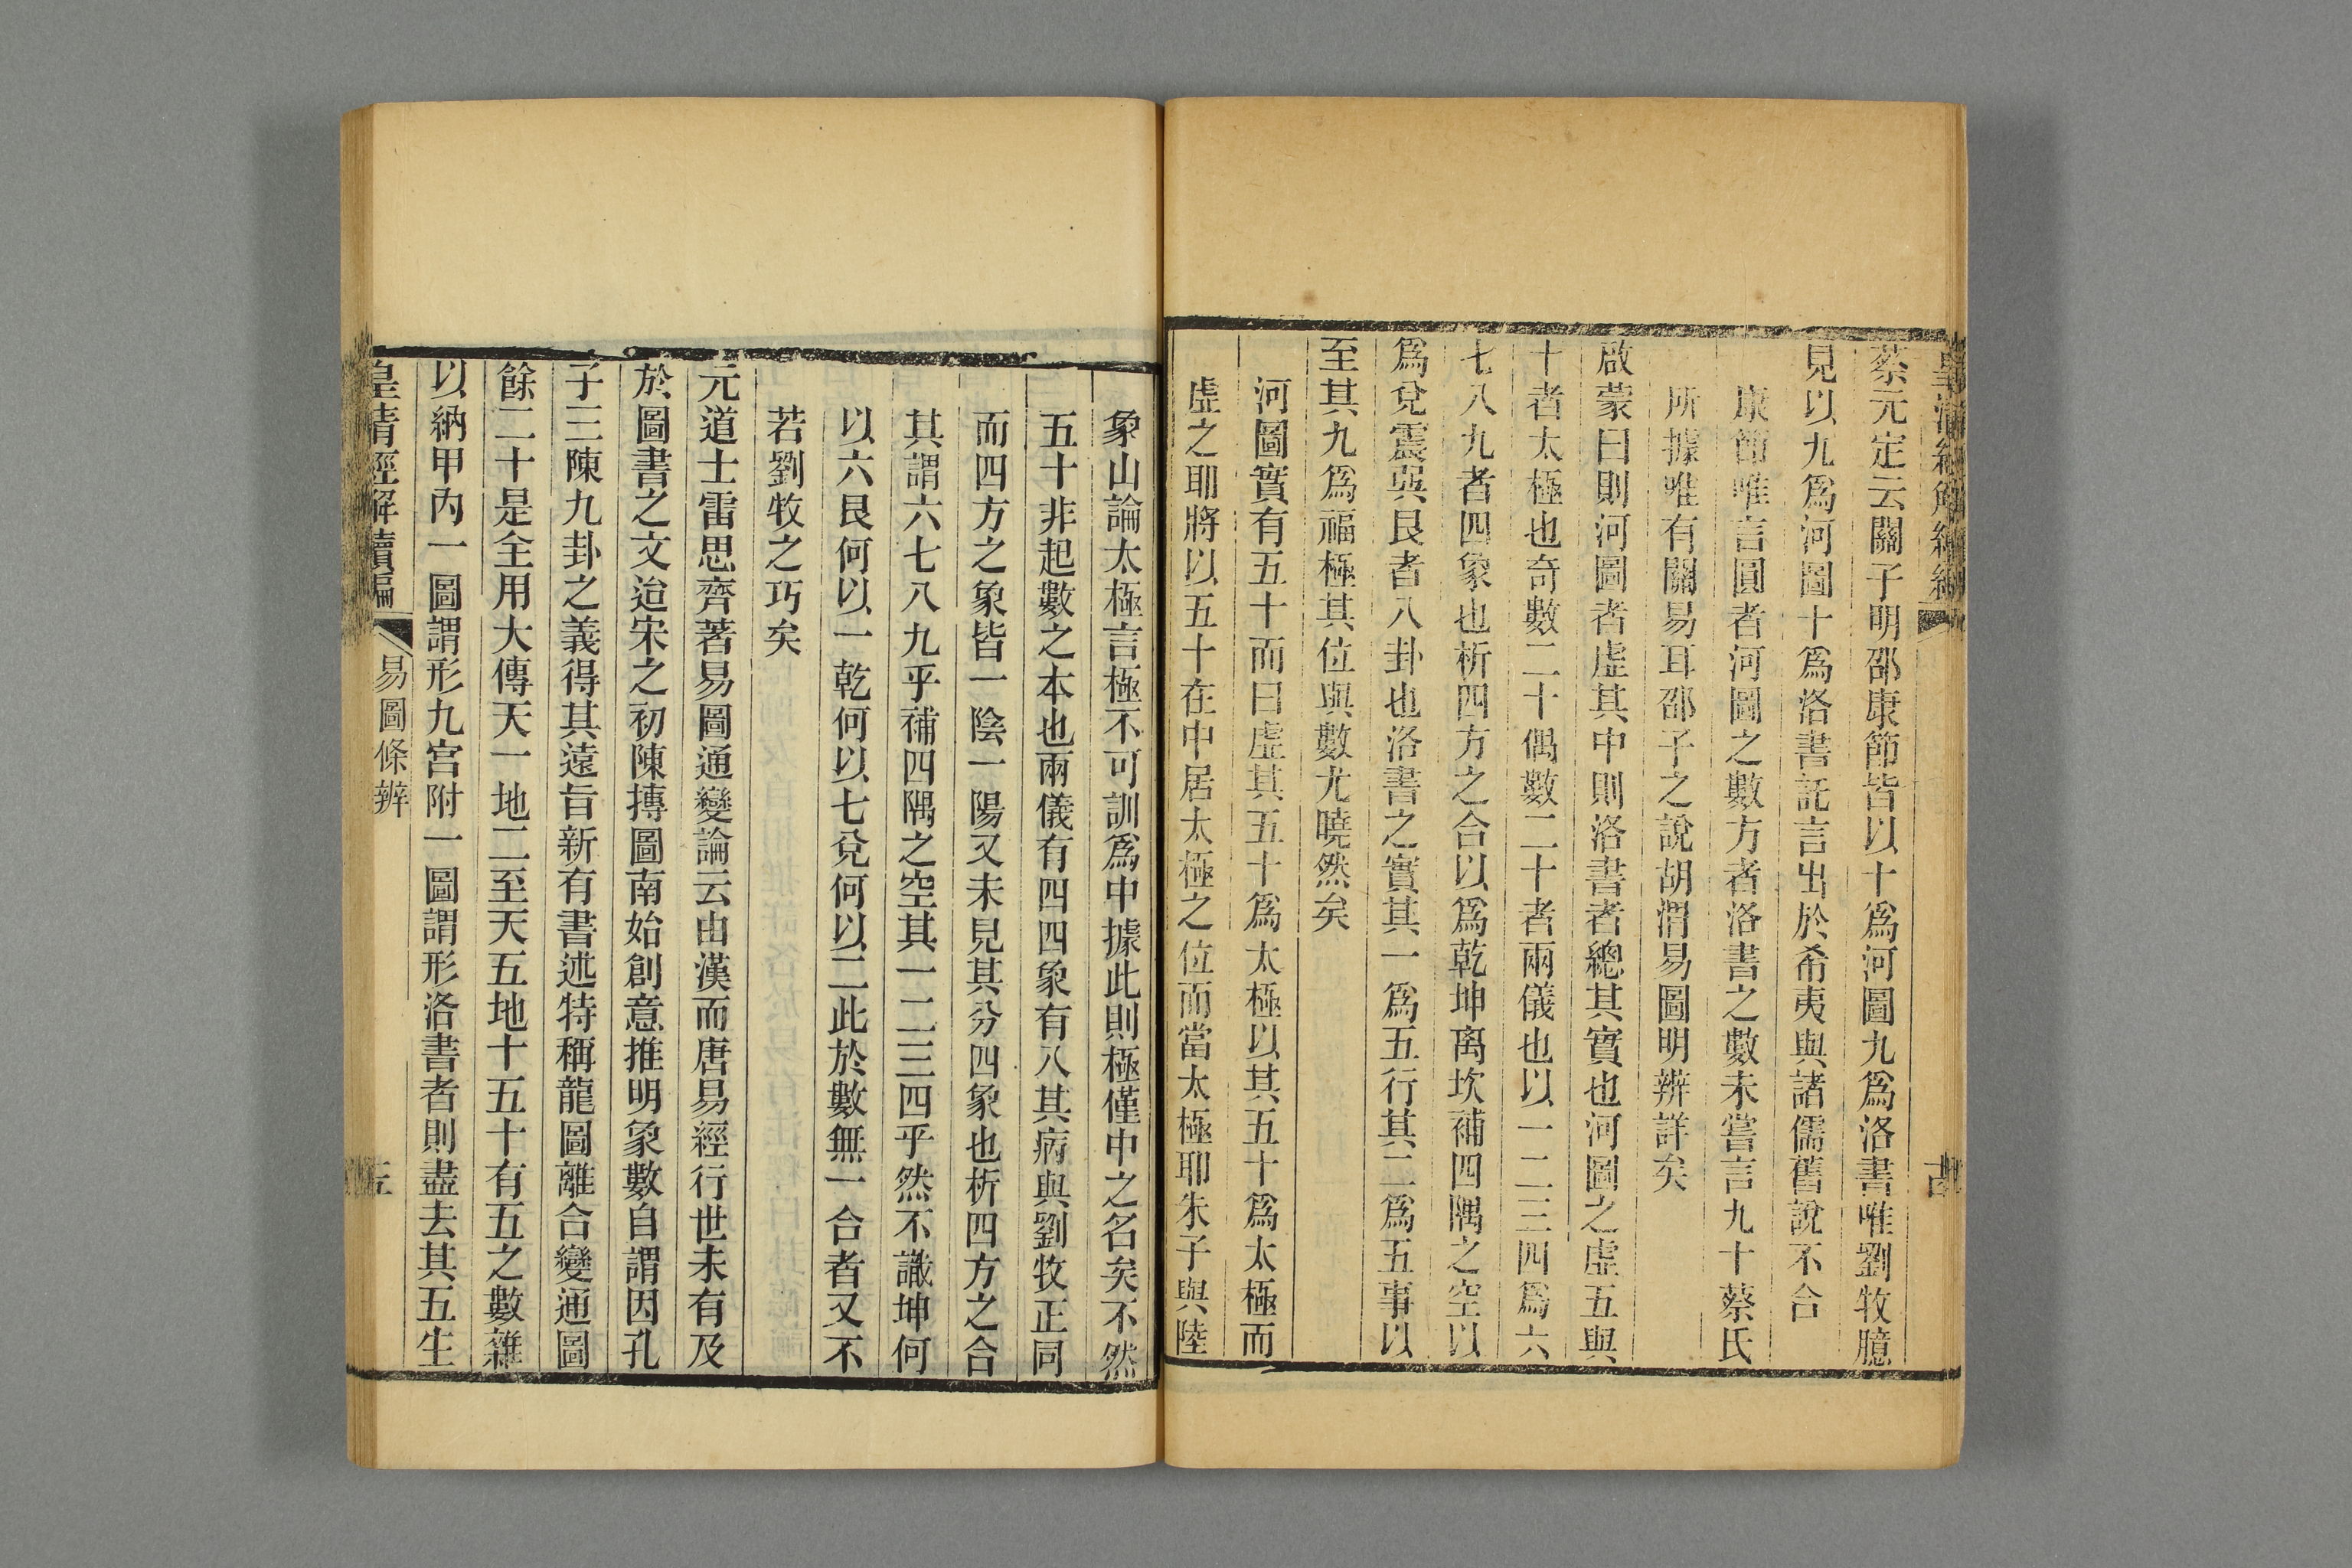 皇清經解續編
蔡元定云關子明邵康節皆以十爲河圖九爲洛書唯劉牧臆
見以九爲河圖十爲洛書託言出於希夷與諸儒舊說不合
康節唯言圓者河圖之數方者洛書之數未嘗言九十蔡氏
所據唯有關易耳邵子之說胡渭易圖明辨詳矣
啟蒙曰則河圖者虛其中則洛書者總其實也河圖之虛五與
十者太極也奇數二十偶數二十者兩儀也以一二三四爲六
七八九者四象也析四方之合以爲乾坤离坎補四隅之空以
爲兌震巽艮者八卦也洛書之實其一爲五行其二爲五事以
至其九爲福極其位與數尤曉然矣
河圖實有五十而曰虛其五十爲太極以其五十爲太極而
虛之耶將以五十在中居太極之位而當太極耶朱子與陸
象山論太極言極不可訓爲中據此則極僅中之名矣不然
五十非起數之本也兩儀有四四象有八其病與劉牧正同
而四方之象皆一陰一陽又未見其分四象也析四方之合
其謂六七八九乎補四隅之空其一二三四乎然不識坤何
以六艮何以一乾何以七兌何以二此於數無一合者又不
若劉牧之巧矣
元道士雷思齊著易圖通變論云由漢而唐易經行世未有及
於圖書之文迨宋之初陳摶圖南始創意推明象數自謂因孔
子三陳九卦之義得其遠旨新有書述特稱龍圖離合變通圖
餘二十是全用大傳天一地二至天五地十五十有五之數雜
以納甲內一圖謂形九宮附一圖謂形洛書者則盡去其五生
皇清經解續編
易圖條辨